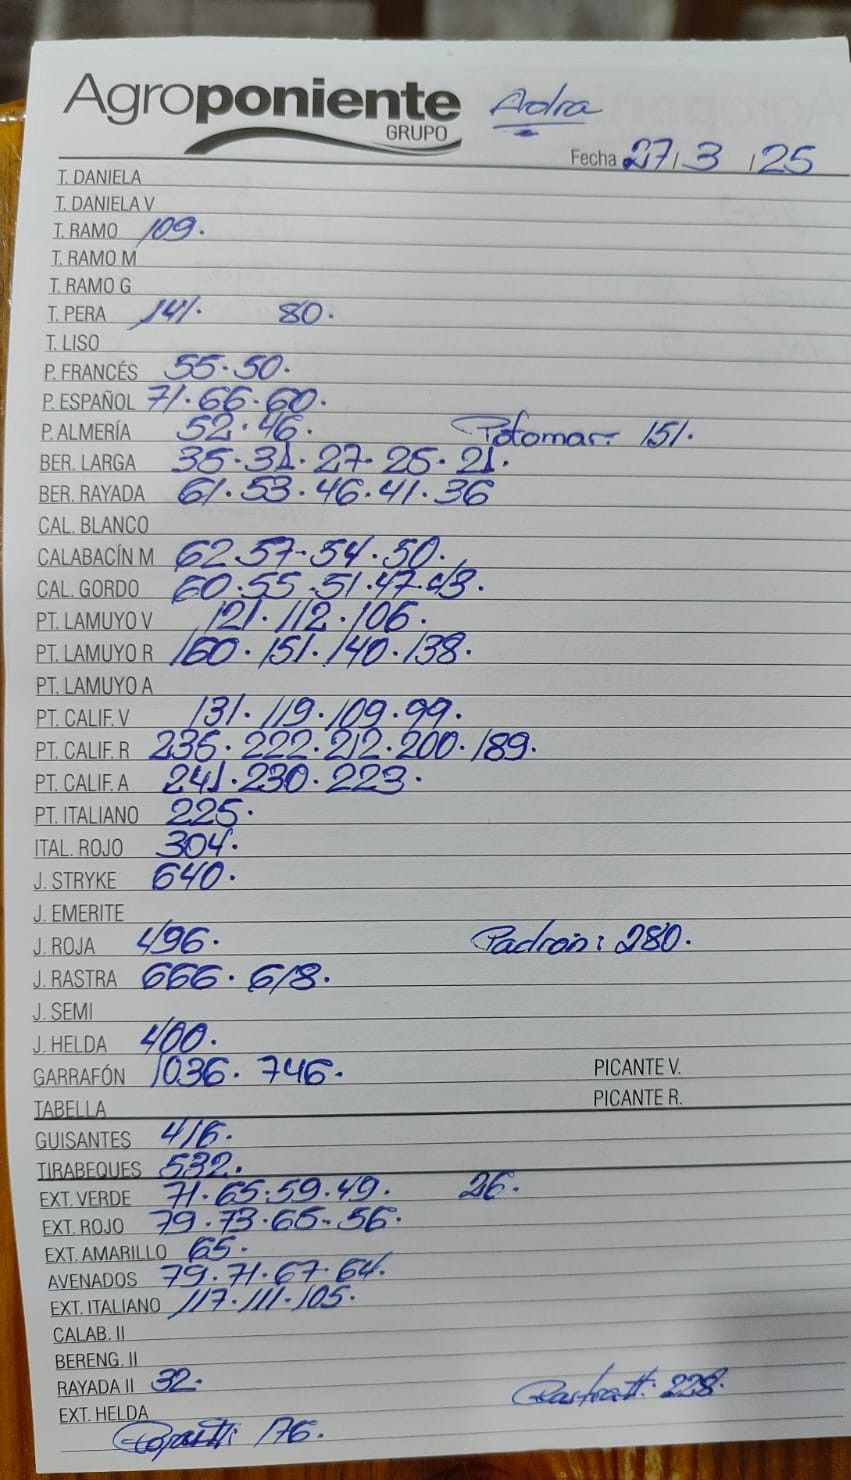 Agroponiente Adra
GRUPO
Fecha 27/3/25
T. DANIELA
T. DANIELA V
T. RAMO 109.
T. RAMO M
T. RAMO G
T. PERA 141. 80.
T. LISO
P. FRANCÉS 55.50.
P. ESPAÑOL 71.66.60.
P. ALMERÍA 52.46. Potomac: 151.
BER. LARGA 35.31.27.25.21.
BER. RAYADA 61.53.46.41.36
CAL. BLANCO
CALABACÍN M 62.57.54.50.
CAL. GORDO 60.55.51.47.43.
PT. LAMUYO V 121.112.106.
PT. LAMUYO R 160.151.140.138.
PT. LAMUYO A
PT. CALIF. V 131.119.109.99.
PT. CALIF. R 236.222.212.200.189.
PT. CALIF. A 241.230.223.
PT. ITALIANO 225.
ITAL. ROJO 304.
J. STRYKE 640.
J. EMERITE
J. ROJA 496. Padron: 280.
J. RASTRA 666.618.
J. SEMI
J. HELDA 400.
GARRAFÓN 1036.746. PICANTE V.
TABELLA PICANTE R.
GUISANTES 416.
TIRABEQUES 532.
EXT. VERDE 71.65.59.49. 26.
EXT. ROJO 79.73.65.56.
EXT. AMARILLO 65.
AVENADOS 79.71.67.64.
EXT. ITALIANO 117.111.105.
CALAB. II
BERENG. II
RAYADA II 32.
EXT. HELDA 228.
176.